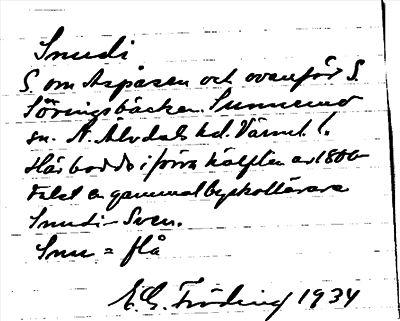 Snudi
S. om Aspåsen och ovanför S.
Söringsbäcken. Sunnemo
sn. N. Älvdals hd. Värml. l.
Här bodde i förra hälften av 1800-
talet en gammal byskollärare
Snudi-Sven.
Snu = flå
E. G. Fröding 1934